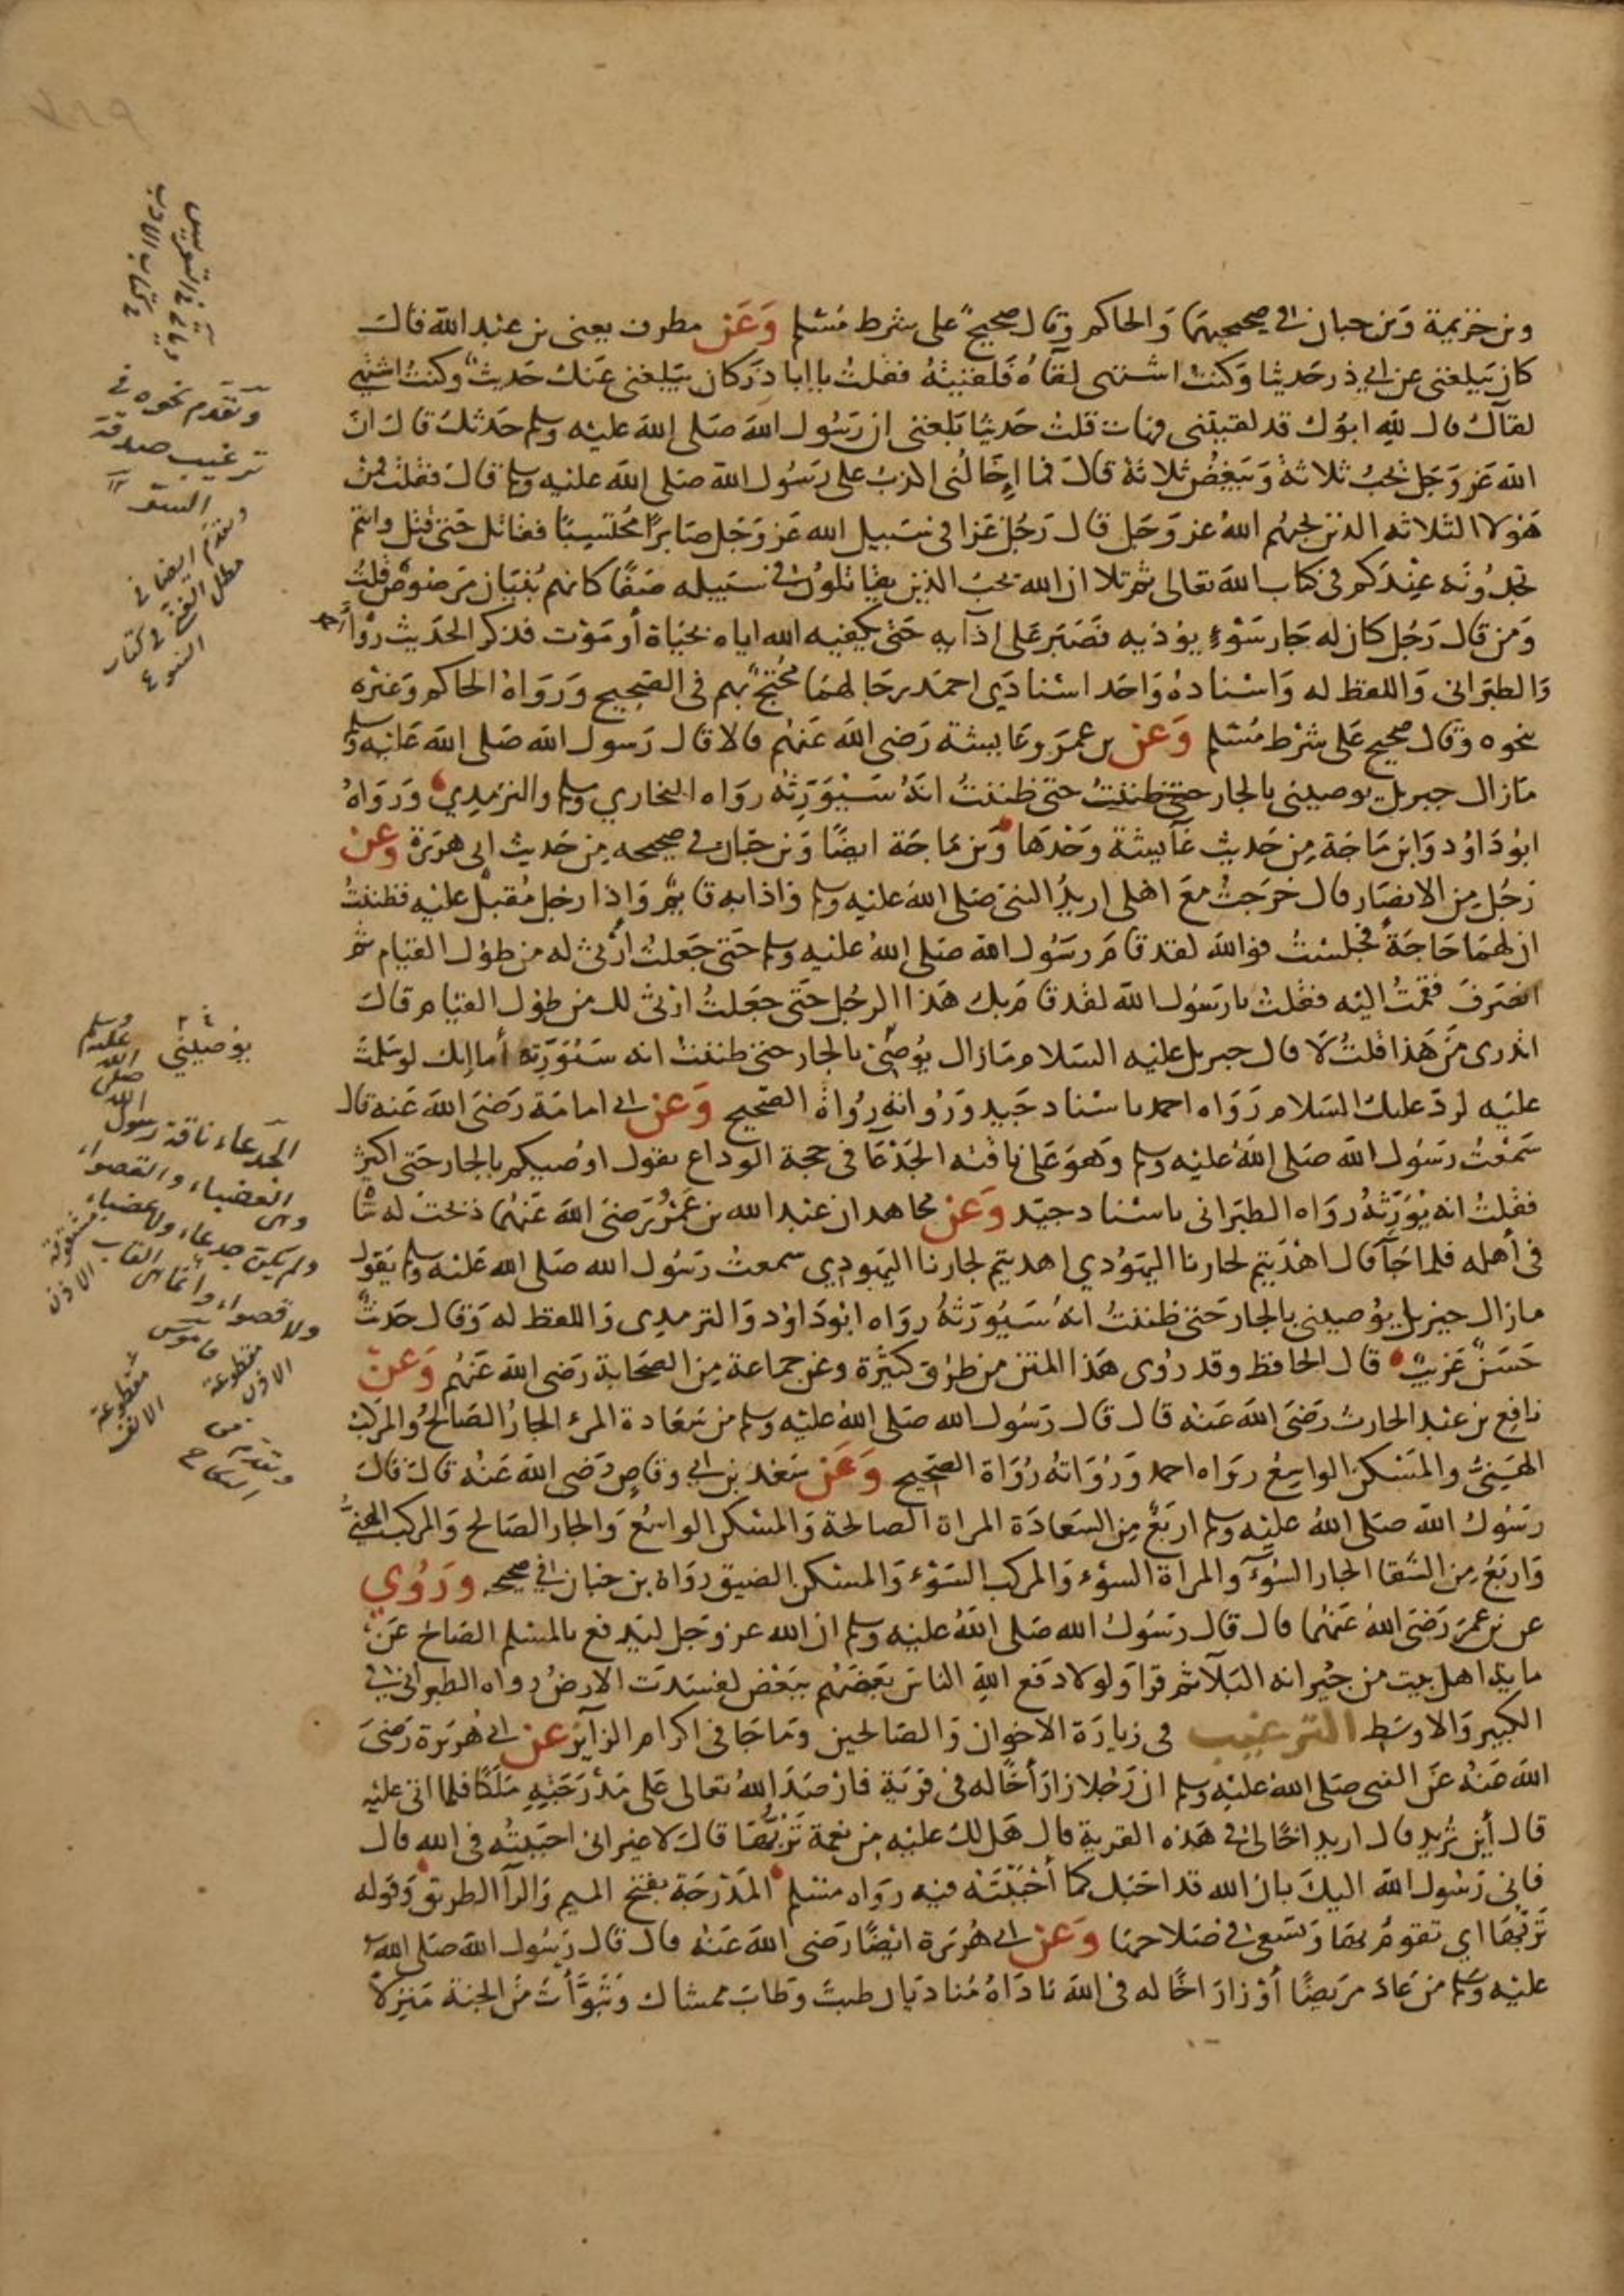 وبن خزيمة وبن حبان في صحيحيهما والحاكم وقال صحيح على شرط مسلم وعن مطرف يعني بن عبد الله قال
كان يبلغني عن ابي ذر حديثا وكنت اشتهي لقآه فلقيته فقلت يا ابا ذر كان يبلغني عنك حديث وكنت اشتهي
لقآك قال لله ابوك قد لقيتني فهات قلت حديثا بلغني ان رسول الله صلى الله عليه وسلم حدثك قال ان
الله عز وجل يحب ثلاثة ويبغض ثلاثة قال فما إخالني اكذب على رسول الله صلى الله عليه وسلم قال فقلت فمن
هؤلا الثلاثه الذين يحبهم الله عز وجل قال رجل غزا في سبيل الله عز وجل صابرا محتسبا فقاتل حتى قتل وانتم
تجدونه عندكم في كتاب الله تعالى ثم تلا ان الله يحب الذين يقاتلون في سبيله صفا كانهم بنيان مرصوص قلت
ومن قال رجل كان له جار سوء يوذيه فصبر على إذآيه حتى يكفيه الله اياه بحياة أو موت فذكر الحديث رواه احمد
والطبراني واللفظ له واسناده واحد اسنادي احمد رجالهما محتج بهم في الصحيح ورواه الحاكم وغيره
بنحوه وقال صحيح على شرط مسلم وعن بن عمر وعايشة رضي الله عنهم قالا قال رسول الله صلى الله عليه وسلم
مازال جبريل يوصيني بالجار حتى ظننت حتى ظننت انه سيورثه رواه البخاري ومسلم والترمذي ورواه
ابو داود وابن ماجة من حديث عآيشة وحدها وبن ماجة ايضا وبن حبان في صحيحه من حديث ابي هريرة وعن
رجل من الانصار قال خرجت مع اهلي اريد النبي صلى الله عليه وسلم واذا به قايم واذا رجل مقبل عليه فظننت
ان لهما حاجة فجلست فوالله لقد قام رسول الله صلى الله عليه وسلم حتى جعلت أرثي له من طول القيام ثم
انصرف فقمت اليه فقلت يا رسول الله لقد قام بك هذا الرجل حتى جعلت ارثي لك من طول القيام قال
اتدري من هذا قلت لا قال جبريل عليه السلام مازال يوصيني بالجار حتى ظننت انه سيورثه أما إنك لو سلمت
عليه لرد عليك السلام رواه احمد باسناد جيد ورواته رواة الصحيح وعن ابي امامة رضي الله عنه قال
سمعت رسول الله صلى الله عليه وسلم وهو على ناقته الجدعا في حجة الوداع يقول اوصيكم بالجار حتى اكثر
فقلت انه يورثه رواه الطبراني باسناد جيد وعن مجاهد ان عبد الله بن عمرو رضي الله عنهما ذبحت له شاة
في أهله فلما جآ قال اهديتم لجارنا اليهودي اهديتم لجارنا اليهودي سمعت رسول الله صلى الله عليه وسلم يقول
مازال جبريل يوصيني بالجار حتى ظننت انه سيورثه رواه ابو داود والترمذي واللفظ له وقال حديث
حسن غريب قال الحافظ وقد روى هذا المتن من طرق كثيرة وعن جماعة من الصحابة رضي الله عنهم وعن
نافع بن عبد الحارث رضي الله عنه قال قال رسول الله صلى الله عليه وسلم من سعادة المرء الجار الصالح والمركب
الهني والمسكن الواسع رواه احمد ورواته رواة الصحيح وعن سعد بن ابي وقاص رضي الله عنه قال قال
رسول الله صلى الله عليه وسلم اربع من السعادة المراة الصالحة والمسكن الواسع والجار الصالح والمركب الهني
واربع من الشقا الجار السوء والمراة السوء والمركب السوء والمسكن الضيق رواه بن حبان في صحيحه وروي
عن بن عمر رضي الله عنهما قال قال رسول الله صلى الله عليه وسلم ان الله عز وجل ليدفع بالمسلم الصالح عن
ماية اهل بيت من جيرانه البلا ثم قرا ولولا دفع الله الناس بعضهم ببعض لفسدت الارض رواه الطبراني في
الكبير والاوسط الترغيب في زيارة الاخوان والصالحين وما جا في اكرام الزآير عن ابي هريرة رضي
الله عنه عن النبي صلى الله عليه وسلم ان رجلا زار أخا له في قرية فارصد الله تعالى على مدرجته ملكا فلما اتى عليه
قال أين تريد قال اريد اخا لي في هذه القرية قال هل لك عليه من نعمة تربها قال لا غير اني احببته في الله قال
فاني رسول الله اليك بان الله قد احبك كما أحببته فيه رواه مسلم المدرجة بفتح الميم والرآ الطريق وقوله
تربها اي تقوم بها وتسعى في صلاحها وعن ابي هريرة ايضا رضي الله عنه قال قال رسول الله صلى الله
عليه وسلم من عاد مريضا أو زار اخا له في الله ناداه مناد بان طبت وطاب ممشاك وتبوأت من الجنة منزلا
وتقدم نحوه في
ترغيب صدقة
السر
وتقدم ايضا في
يوصيني
الجدعاء ناقة رسول
الله
صلى
الله
عليه
وسلم
وهي العضباء والقصواء
ولم يكن جدعاء ولا عضباء
ولا قصواء وانما هي القاب
قاموس
مقطوعة
الاذن
مقطوعة
الانف